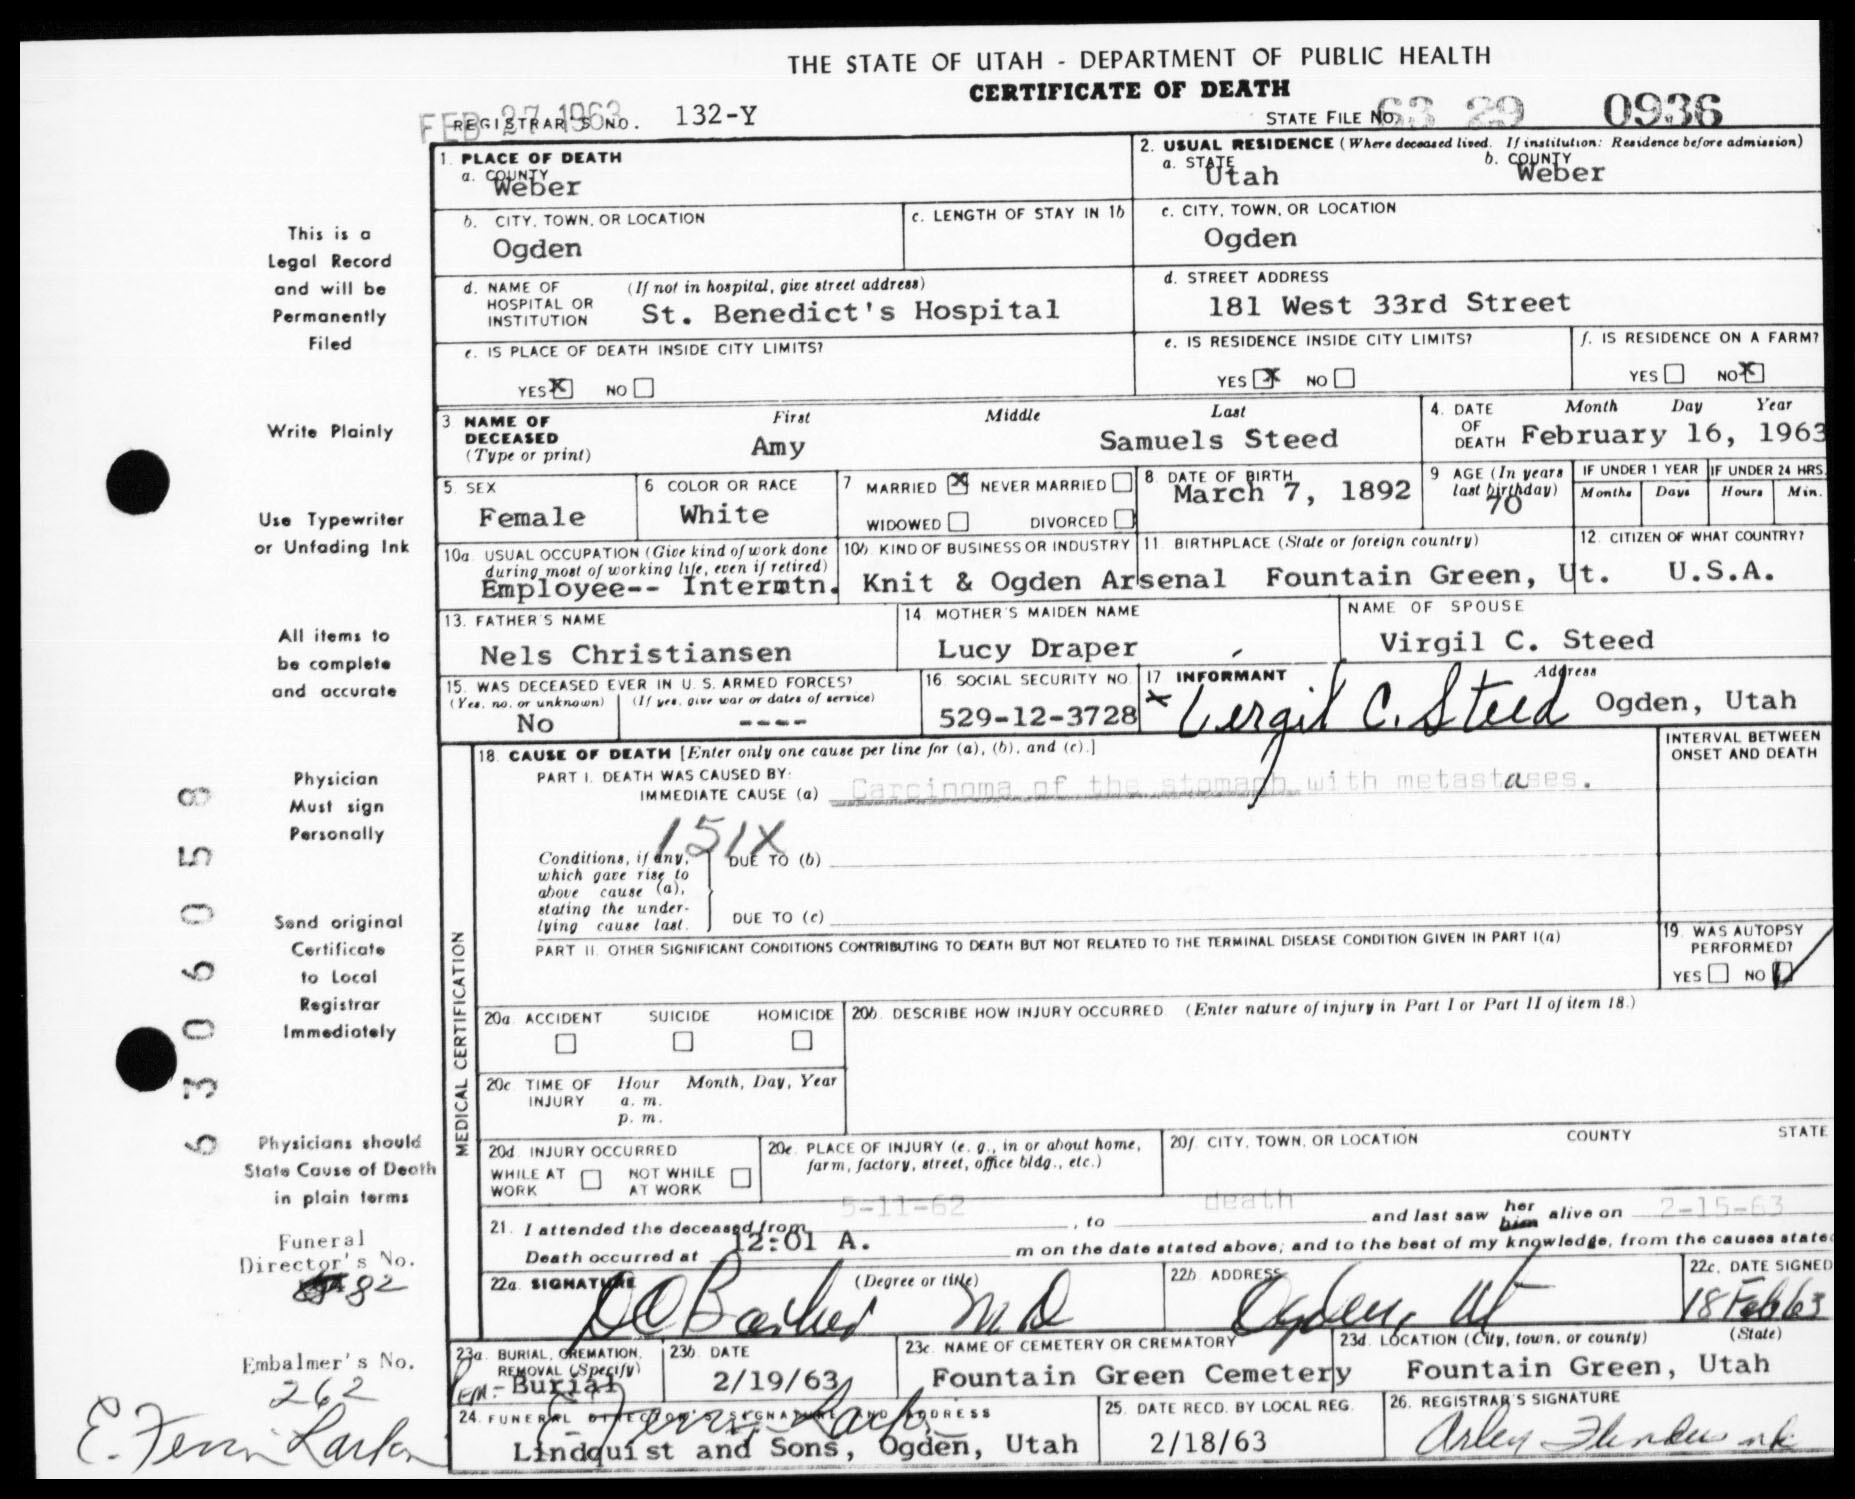 THE STATE OF UTAH - DEPARTMENT OF PUBLIC HEALTH
CERTIFICATE OF DEATH
FEB 27 1963
REGISTRAR'S NO. 132-Y
STATE FILE NO. 63 29 0936
1. PLACE OF DEATH
a. COUNTY
Weber
2. USUAL RESIDENCE (Where deceased lived. If institution: Residence before admission)
a. STATE
Utah
b. COUNTY
Weber
b. CITY, TOWN, OR LOCATION
Ogden
c. LENGTH OF STAY IN 1b
c. CITY, TOWN, OR LOCATION
Ogden
d. NAME OF HOSPITAL OR INSTITUTION (If not in hospital, give street address)
St. Benedict's Hospital
d. STREET ADDRESS
181 West 33rd Street
e. IS PLACE OF DEATH INSIDE CITY LIMITS?
YES X NO
e. IS RESIDENCE INSIDE CITY LIMITS?
YES X NO
f. IS RESIDENCE ON A FARM?
YES NO X
3 NAME OF DECEASED (Type or print)
First Middle Last
Amy Samuels Steed
4. DATE OF DEATH
Month Day Year
February 16, 1963
5. SEX
Female
6 COLOR OR RACE
White
7 MARRIED X NEVER MARRIED
WIDOWED DIVORCED
8. DATE OF BIRTH
March 7, 1892
9 AGE (In years last birthday)
70
IF UNDER 1 YEAR
Months Days
IF UNDER 24 HRS.
Hours Min.
10a. USUAL OCCUPATION (Give kind of work done during most of working life, even if retired)
10b. KIND OF BUSINESS OR INDUSTRY
Employee-- Intermtn. Knit & Ogden Arsenal
11. BIRTHPLACE (State or foreign country)
Fountain Green, Ut.
12. CITIZEN OF WHAT COUNTRY?
U.S.A.
13. FATHER'S NAME
Nels Christiansen
14 MOTHER'S MAIDEN NAME
Lucy Draper
NAME OF SPOUSE
Virgil C. Steed
15. WAS DECEASED EVER IN U.S. ARMED FORCES?
(Yes, no, or unknown) (If yes, give war or dates of service)
No ----
16. SOCIAL SECURITY NO.
529-12-3728
17 INFORMANT Address
x Virgil C. Steed Ogden, Utah
MEDICAL CERTIFICATION
18. CAUSE OF DEATH [Enter only one cause per line for (a), (b), and (c).]
INTERVAL BETWEEN ONSET AND DEATH
PART I. DEATH WAS CAUSED BY:
IMMEDIATE CAUSE (a) Carcinoma of the stomach with metastases.
151X
Conditions, if any, which gave rise to above cause (a), stating the underlying cause last.
DUE TO (b)
DUE TO (c)
PART II. OTHER SIGNIFICANT CONDITIONS CONTRIBUTING TO DEATH BUT NOT RELATED TO THE TERMINAL DISEASE CONDITION GIVEN IN PART I(a)
19. WAS AUTOPSY PERFORMED?
YES NO
20a. ACCIDENT SUICIDE HOMICIDE
20b. DESCRIBE HOW INJURY OCCURRED (Enter nature of injury in Part I or Part II of item 18.)
20c TIME OF INJURY Hour Month, Day, Year
a. m.
p. m.
20d INJURY OCCURRED
WHILE AT WORK NOT WHILE AT WORK
20e. PLACE OF INJURY (e. g., in or about home, farm, factory, street, office bldg., etc.)
20f. CITY, TOWN, OR LOCATION COUNTY STATE
21. I attended the deceased from 5-11-62, to death and last saw her him alive on 2-15-63
Death occurred at 12:01 A. m on the date stated above; and to the best of my knowledge, from the causes state
22a. SIGNATURE (Degree or title)
DC Barker M D
22b ADDRESS
Ogden, Ut
22c. DATE SIGNED
18 Feb 63
23a. BURIAL, CREMATION, REMOVAL (Specify)
Rem- Burial
23b DATE
2/19/63
23c. NAME OF CEMETERY OR CREMATORY
Fountain Green Cemetery
23d. LOCATION (City, town, or county) (State)
Fountain Green, Utah
24. FUNERAL DIRECTOR'S SIGNATURE AND ADDRESS
Lindquist and Sons, Ogden, Utah
25. DATE RECD. BY LOCAL REG.
2/18/63
26. REGISTRAR'S SIGNATURE
This is a
Legal Record
and will be
Permanently
Filed
Write Plainly
Use Typewriter
or Unfading Ink
All items to
be complete
and accurate
Physician
Must sign
Personally
Send original
Certificate
to Local
Registrar
Immediately
Physicians should
State Cause of Death
in plain terms
Funeral
Director's No.
82
Embalmer's No.
262
6306058